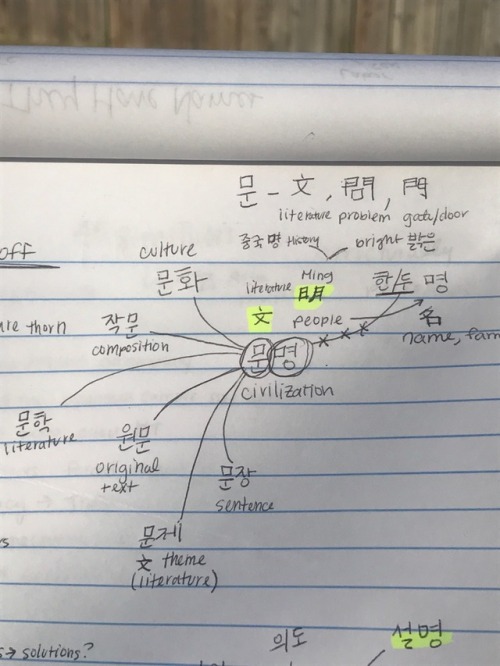 문 - 文, 問, 門
literature problem gate/door
중국 명 History bright 밝은
off
culture
문화
literature Ming
明
한/두 명
文
people
名
name, fam
ure thorn
작문
composition
문명
civilization
문학
literature
원문
original
text
문장
sentence
문제
文 theme
(literature)
s → solutions?
의도
설명